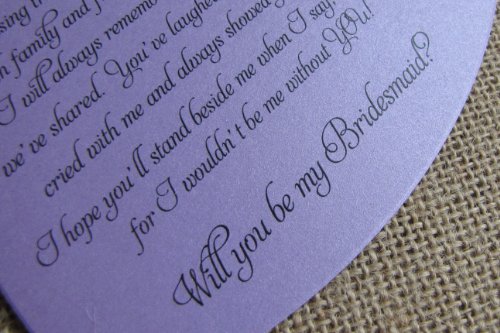 sing th
n family and f
I will always rememb
we've shared. You've laughed
cried with me and always showed
I hope you'll stand beside me when I say,
for I wouldn't be me without YOU!
Will you be my Bridesmaid?